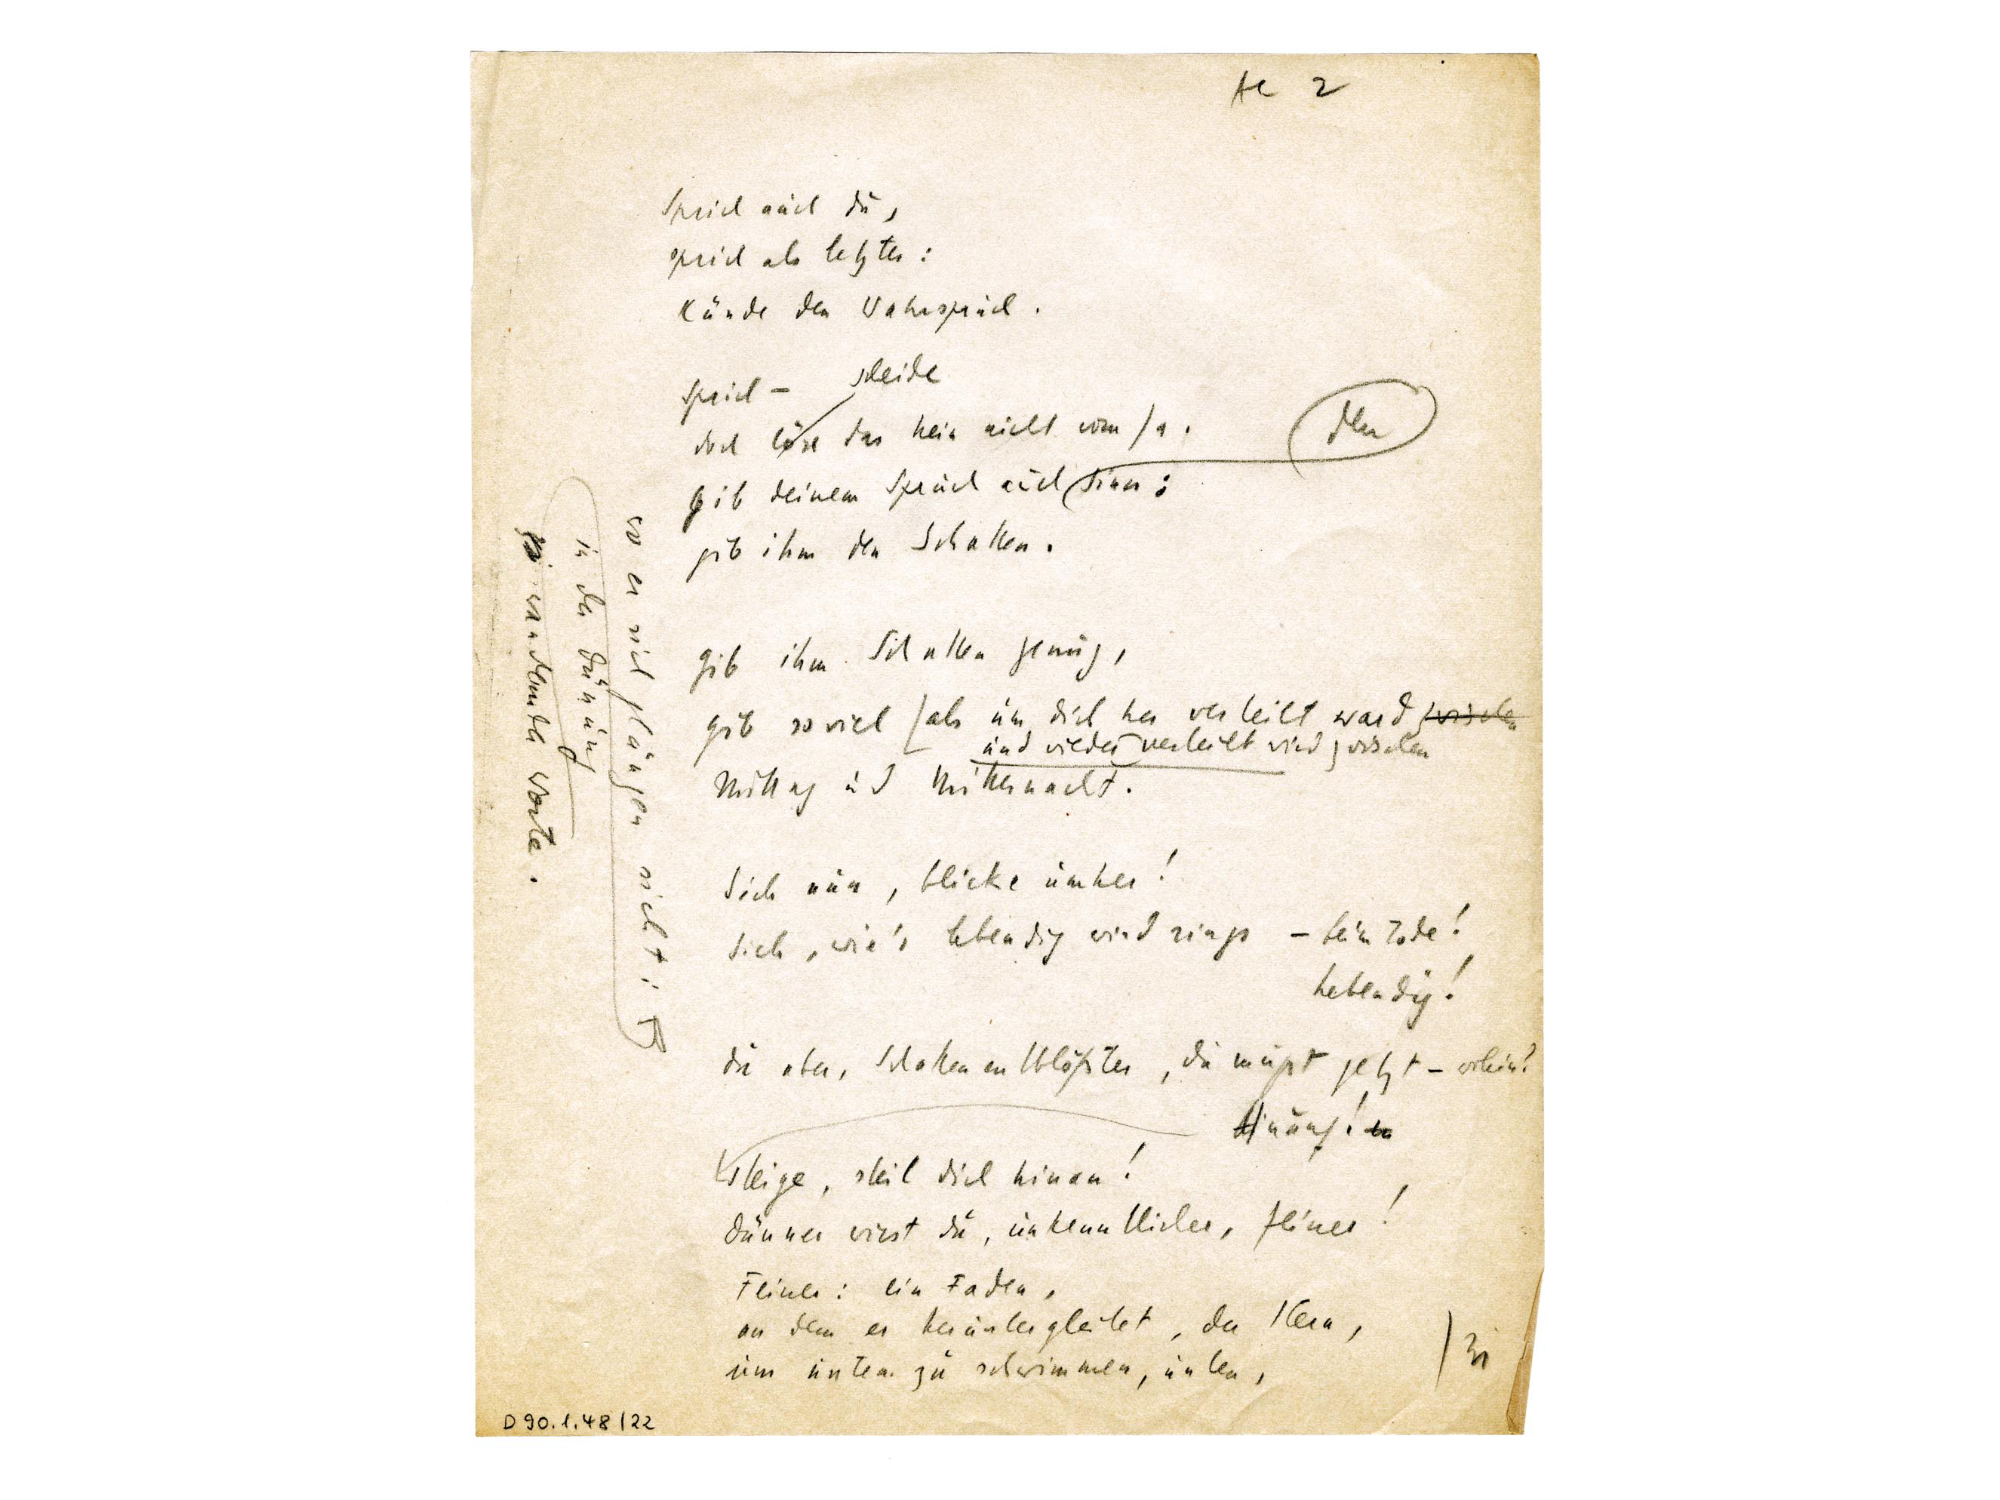 Ac 2
Sprich auch du,
sprich als letzter:
Künde den Wahrspruch.
Sprich – scheide
doch löse das Nein nicht vom Ja.
den
gib deinem Spruch auch Sinn:
gib ihm den Schatten.
gib ihm Schatten genug,
gib soviel als um dich her verteilt ward zwischen
und wieder verteilt wird zwischen
Mittag und Mitternacht.
Sieh nun, blicke umher!
Sieh, wie's lebendig wird rings – beim Tode!
Lebendig!
du aber, Schattenentblößter, du mußt jetzt – wohin?
Hinauf!
Steige, steil dich hinan!
Dünner wirst du, unkenntlicher, feiner!
Feiner: ein Faden,
an dem er heruntergleitet, der Stern,
um unten zu schwimmen, unten,
wo er sich glänzen sieht:
in der Dünung
wandernder Worte.
D 90.1.48/22